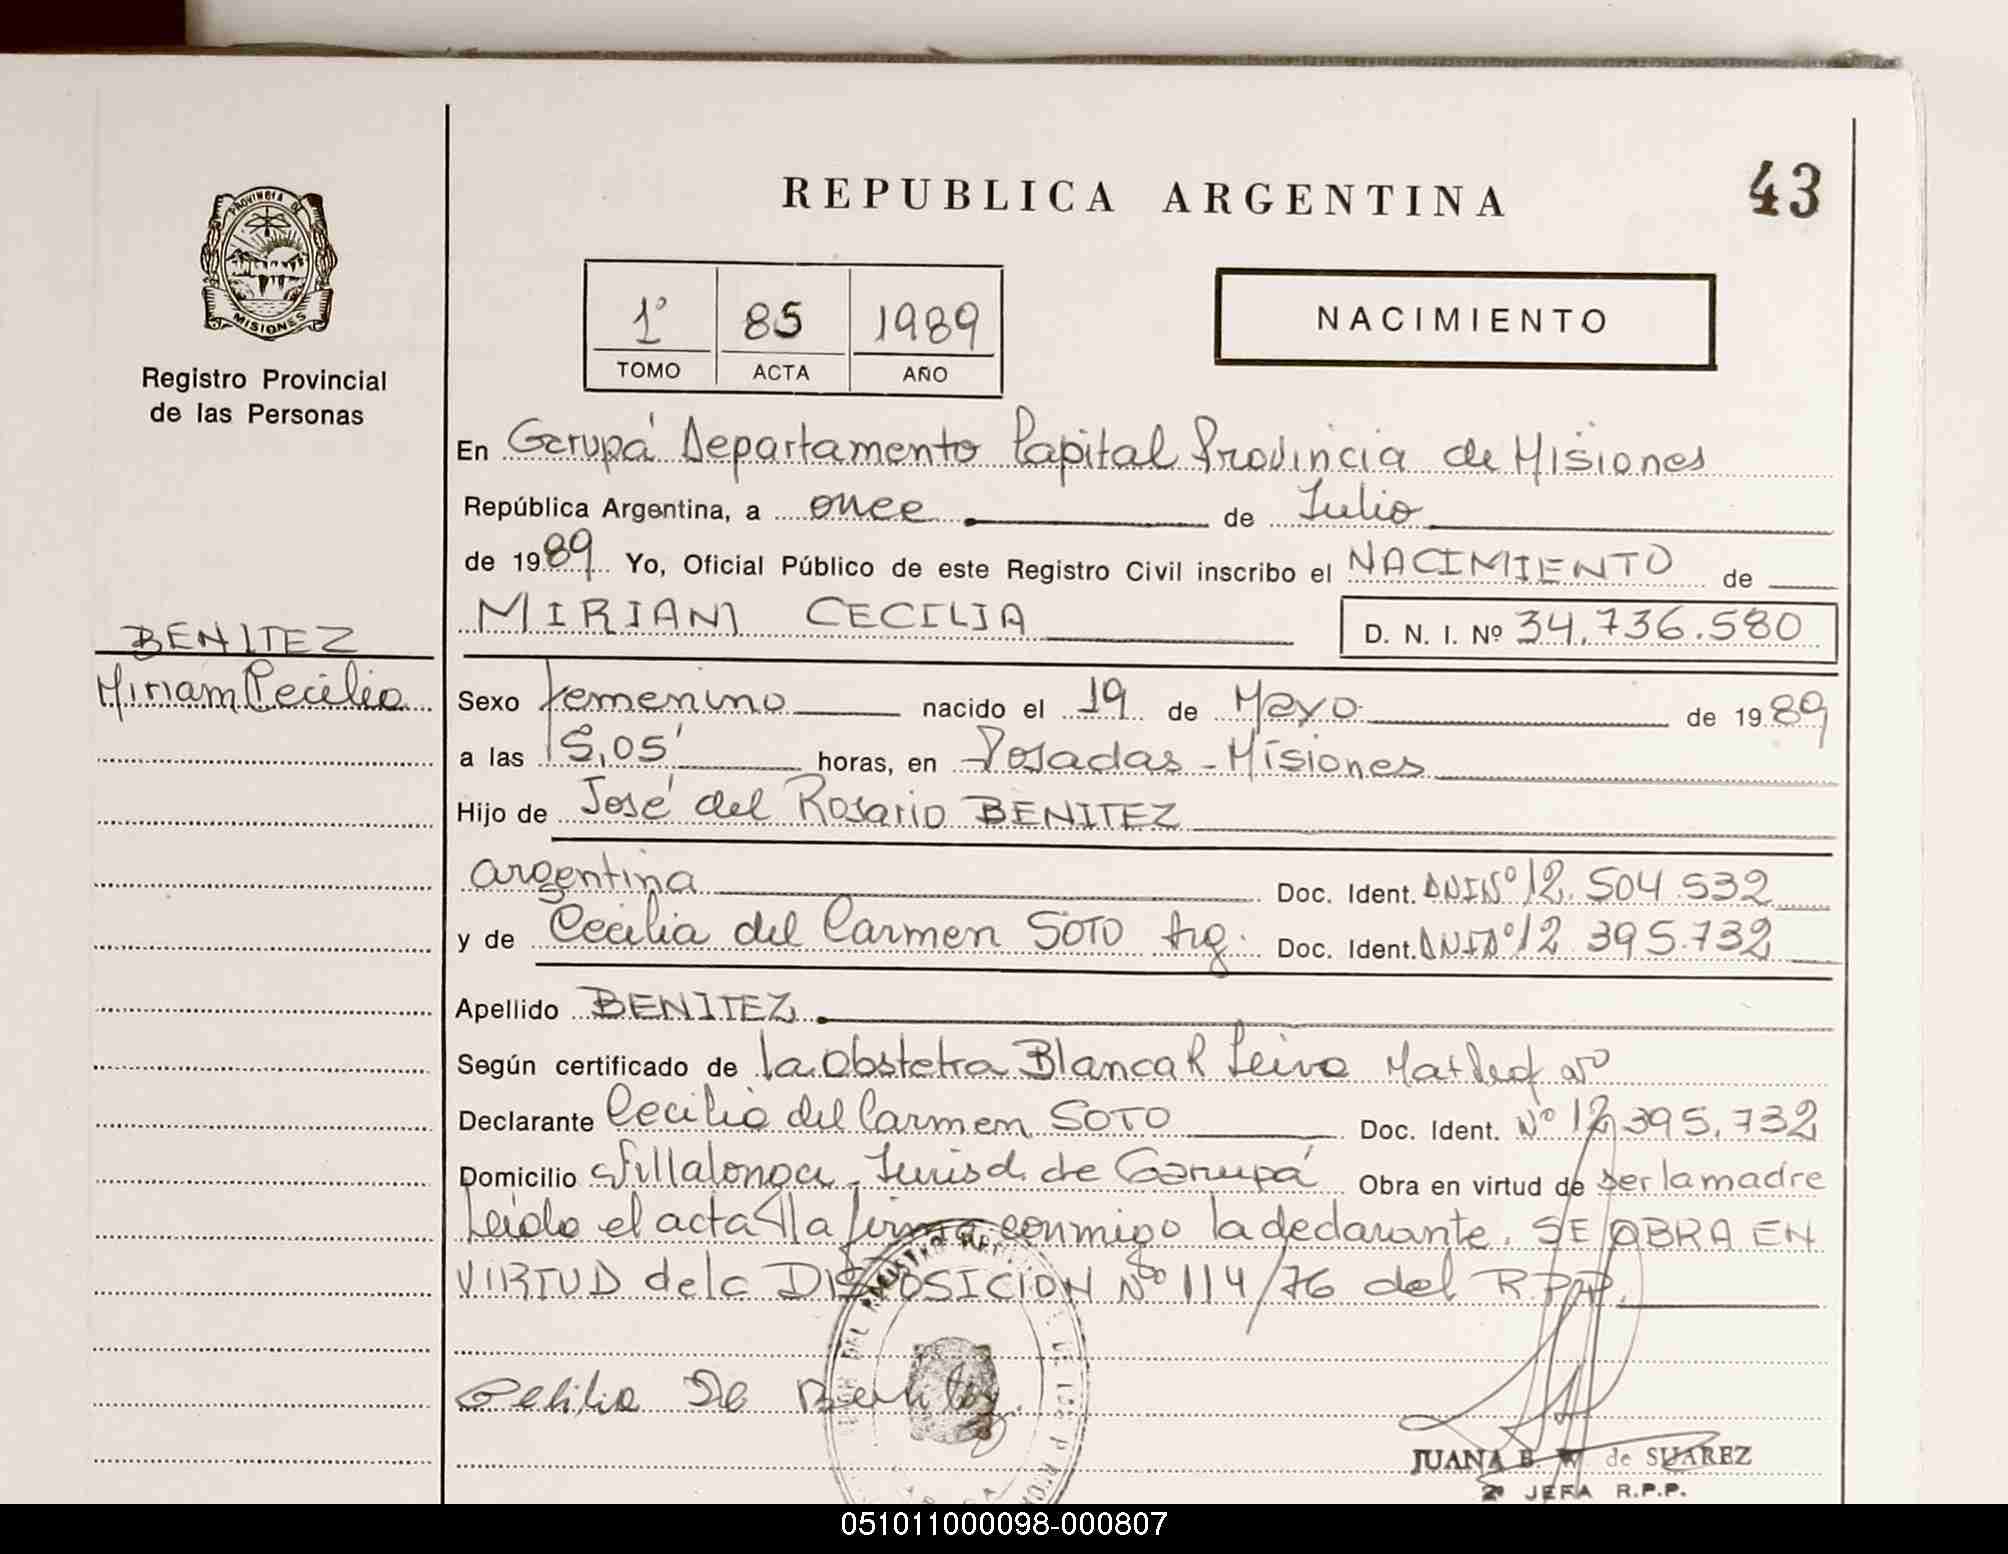 REPUBLICA ARGENTINA
43
PROVINCIA DE
MISIONES
Registro Provincial
de las Personas
1º 85 1989
TOMO ACTA AÑO
NACIMIENTO
En Garupá Departamento Capital Provincia de Misiones
República Argentina, a once de Julio
de 1989 Yo, Oficial Público de este Registro Civil inscribo el NACIMIENTO de
MIRIAM CECILIA D. N. I. Nº 34.736.580
BENITEZ
Miriam Cecilia
Sexo femenino nacido el 19 de Mayo de 1989
a las 15,05' horas, en Posadas - Misiones
Hijo de José del Rosario BENITEZ
argentina Doc. Ident. DNINº 12.504.532
y de Cecilia del Carmen SOTO Arg. Doc. Ident. DNINº 12.395.732
Apellido BENITEZ
Según certificado de la Obstetra Blanca R Leiva
Declarante Cecilia del Carmen SOTO Doc. Ident. Nº 12,395,732
Domicilio Villalonga - Jurisd. de Garupá Obra en virtud de ser la madre
Leida el acta la firma conmigo la declarante. SE OBRA EN
VIRTUD de la DISPOSICION Nº 114/76 del R.P.P.
Cecilia De Benitez
JUANA B. W. de SUAREZ
2º JEFA R.P.P.
051011000098-000807